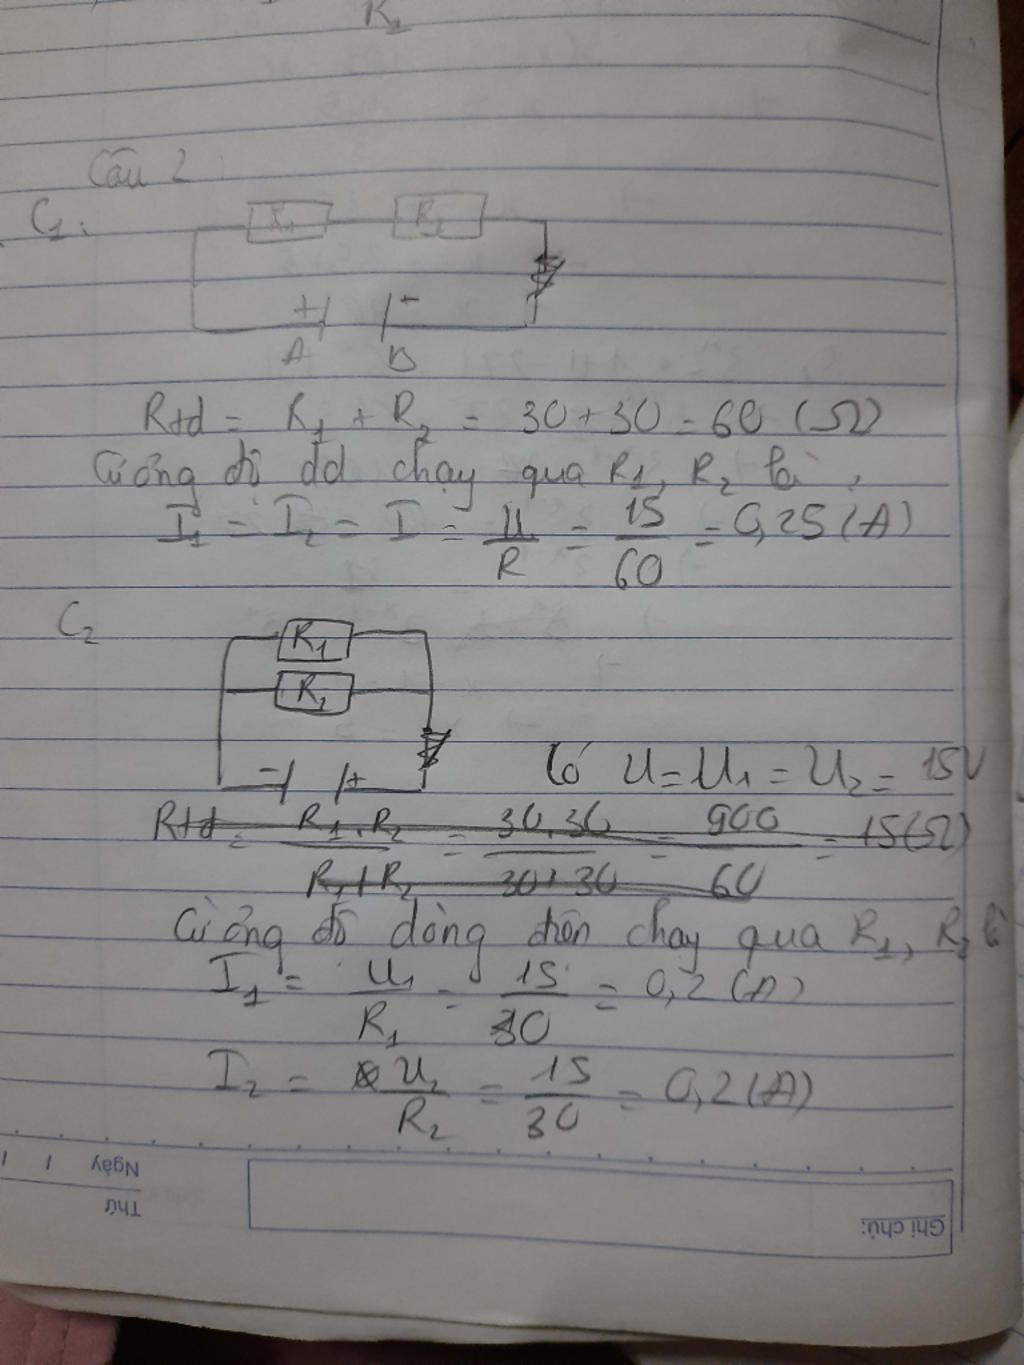 R₂
Câu 2
C₁:
R₁ R₂
+ -
A B
Rtđ = R₁ + R₂ = 30 + 30 = 60 (Ω)
Cường độ dđ chạy qua R₁, R₂ là:
I₁ = I₂ = I = U/R = 15/60 = 0,25 (A)
C₂
R₁
R₂
- +
Có U = U₁ = U₂ = 15V
Rtđ = R₁.R₂/R₁+R₂ = 30.30/30+30 = 900/60 = 15(Ω)
Cường độ dòng điện chạy qua R₁, R₂ là
I₁ = U₁/R₁ = 15/30 = 0,2 (A)
I₂ = U₂/R₂ = 15/30 = 0,2 (A)
Ngày / /
Thứ
Ghi chú: